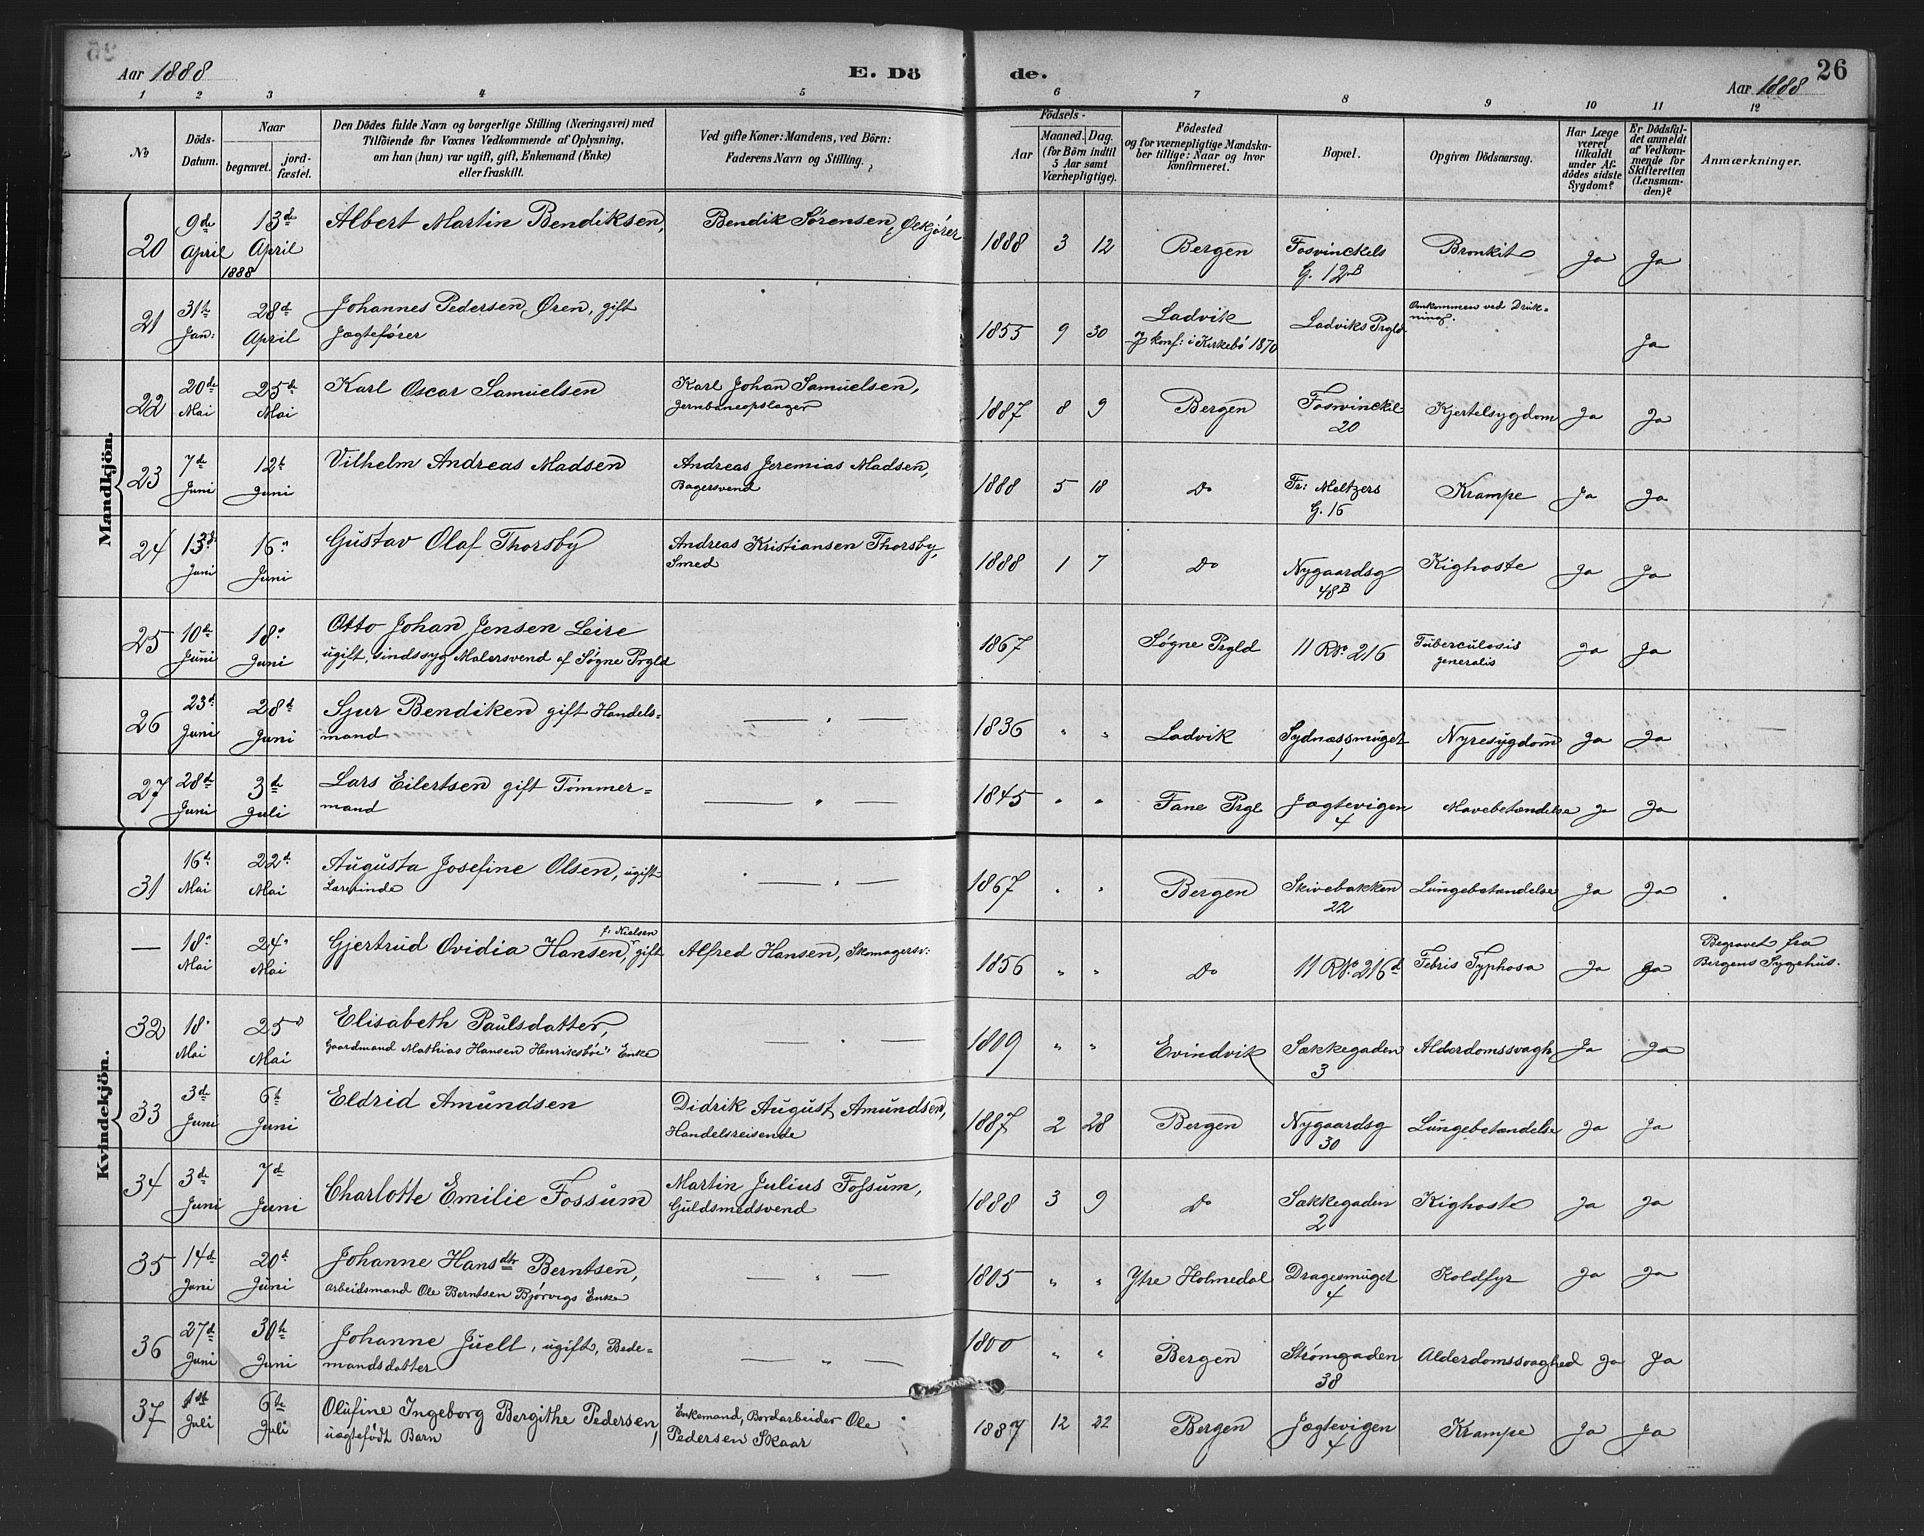 Aar 1888
E. Dö
de.
Aar 1888
26
1 2 3 4 5 6 7 8 9 10 11 12
No
Döds-Datum.
Naar
begravet.
jord-fæstet.
Den Dödes fulde Navn og borgerlige Stilling (Næringsvei) med
Tilföiende for Voxnes Vedkommende af Oplysning,
om han (hun) var ugift, gift, Enkemand (Enke)
eller fraskilt.
Ved gifte Koner: Mandens, ved Börn:
Faderens Navn og Stilling.
Födsels-
Aar
Maaned. Dag.
(for Börn indtil
5 Aar samt
Værnepligtige).
Födested
og for værnepligtige Mandska-
ber tillige: Naar og hvor
konfirmeret.
Bopæl.
Opgiven Dödsaarsag.
Har Læge
været
tilkaldt
under Af-
dödes sidste
Sygdom?
Er Dödsfal-
det anmeldt
af Vedkom-
mende for
Skifteretten
(Lensman-
den)?
Anmærkninger.
Mandkjön.
20 9de April 13d April 1888 Albert Martin Bendiksen, Bendik Sørensen, Ølkjører 1888 3 12 Bergen Fosvinckels G. 12B Bronkit Ja Ja
21 31te Jan: 28d April Johannes Pedersen Øren, gift
Jægtefører 1855 9 30 Ladvik
konf: i Kirkebö 1870 Ladviks Prgld Omkommen ved Drukning. Ja
22 20de Mai 25d Mai Karl Oscar Samuelsen Karl Johan Samuelsen,
Jernbaneopslager 1887 8 9 Bergen Fosvinckel 20 Kjertelsygdom Ja Ja
23 7d Juni 12t Juni Vilhelm Andreas Madsen Andreas Jeremias Madsen,
Bagersvend 1888 5 18 Do Fr: Meltzers G. 16 Krampe Ja Ja
24 13d Juni 16" Juni Gustav Olaf Thorsby Andreas Kristiansen Thorsby,
Smed 1888 1 7 Do Nygaardsg 48B Kighoste Ja Ja
25 10de Juni 18" Juni Otto Johan Jensen Leire
ugift, sindssyg Malersvend af Søgne Prgld 1867 Søgne Prgld 11 R No 216 Tuberculosis
generalis Ja Ja
26 23d Juni 28d Juni Sjur Bendiken gift Handels=
mand — " — 1836 " " Ladvik Sydnæssmuget 1 Nyresygdom Ja Ja
27 28d Juni 3d Juli Lars Eilertsen gift Tömmer=
mand — " — 1845 " " Fane Prgl Jægtevigen 4 Mavebetændelse Ja Ja
Kvindekjön.
31 16d Mai 22d Mai Augusta Josefine Olsen, ugift
Lærerinde — " — 1867 " " Bergen Skivebakken 22 Lungebetændelse Ja Ja
— 18" Mai 24" Mai Gjertrud Ovidia Hansen, f: Nielsen gift Alfred Hansen, Skomagersv: 1856 " " Do 11 R No 216d Febris Typhosa Ja Ja Begravet fra
Bergens Sygehus.
32 18" Mai 25" Mai Elisabeth Paulsdatter,
Gaardmand Mathias Hansen Henriksböi" Enke — " — 1809 " " Evindvik Sækkegaden 3 Alderdomssvagh Ja Ja
33 3de Juni 6t Juni Eldrid Amundsen Didrik August Amundsen,
Handelsreisende 1887 2 28 Bergen Nygaardsg 30 Lungebetændelse Ja Ja
34 3de Juni 7d Juni Charlotte Emilie Fossum Martin Julius Fossum,
Guldsmedsvend 1888 3 9 Do Sækkegaden 2 Kighoste Ja Ja
35 14d Juni 20d Juni Johanne Hansdtr Berntsen,
Arbeidsmand Ole Berntsen Bjørvigs Enke — " — 1805 " " Ytre Holmedal Dragesmuget 4 Koldfyr Ja Ja
36 27d Juni 30te Juni Johanne Juell, ugift, Bede=
mandsdatter — " — 1800 " " Bergen Strømgaden 38 Alderdomssvaghed Ja Ja
37 1st Juli 6te Juli Olufine Ingeborg Bergithe Pedersen,
uægtefödt Barn Enkemand, Bordarbeider Ole
Pedersen Skaar 1887 12 22 Bergen Jægtevigen 4 Krampe Ja Ja